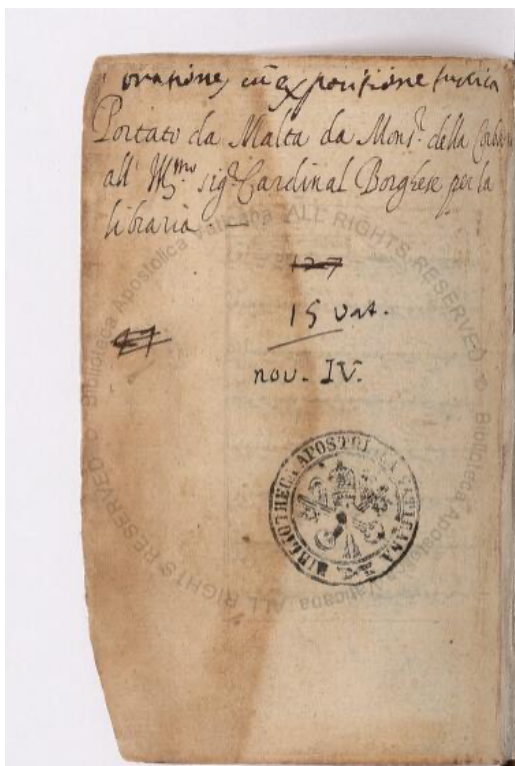 oratione, cū expositione turcica
Portato da Malta da Mons.r della Corbara
all' Ill.mo sig.r Cardinal Borghese per la
libraria —
127
15 vat.
47
nov. IV.
BIBLIOTHECA APOSTOLICA VATICANA
Biblioteca Apostolica Vaticana ALL RIGHTS RESERVED © Biblioteca Apostolica Vaticana ALL RIGHTS RESERVED ©